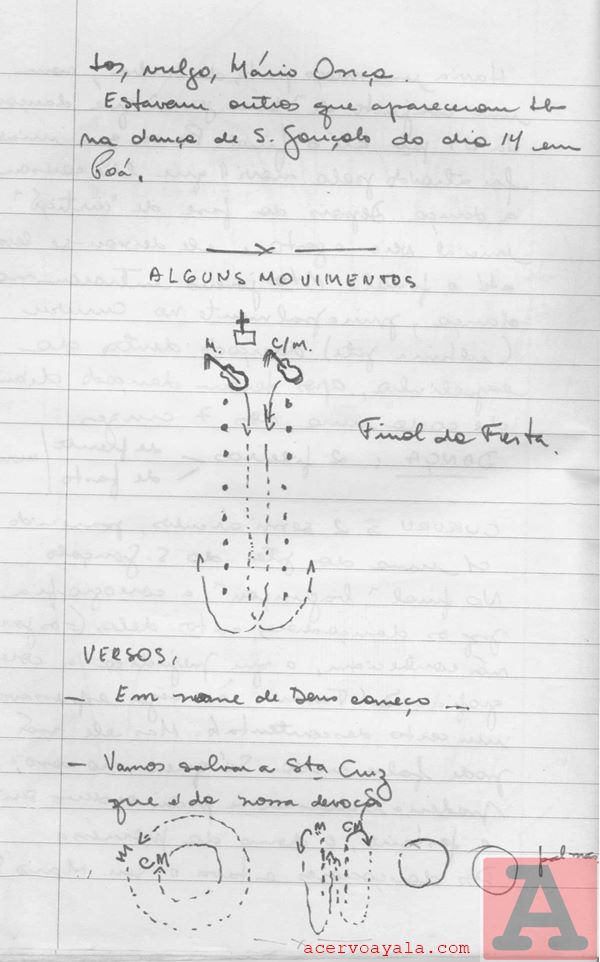 tos, vulgo, Mário Onça.
Estavam outros que apareceram tb
na dança de S. Gonçalo do dia 14 em
Poá.
ALGUNS MOVIMENTOS
M. C/M.
Final da Festa.
VERSOS,
— Em nome de Deus começo ...
— Vamos salvar a Sta Cruz
que é da nossa devoção
M CM
M CM
palmas
A
acervoayala.com